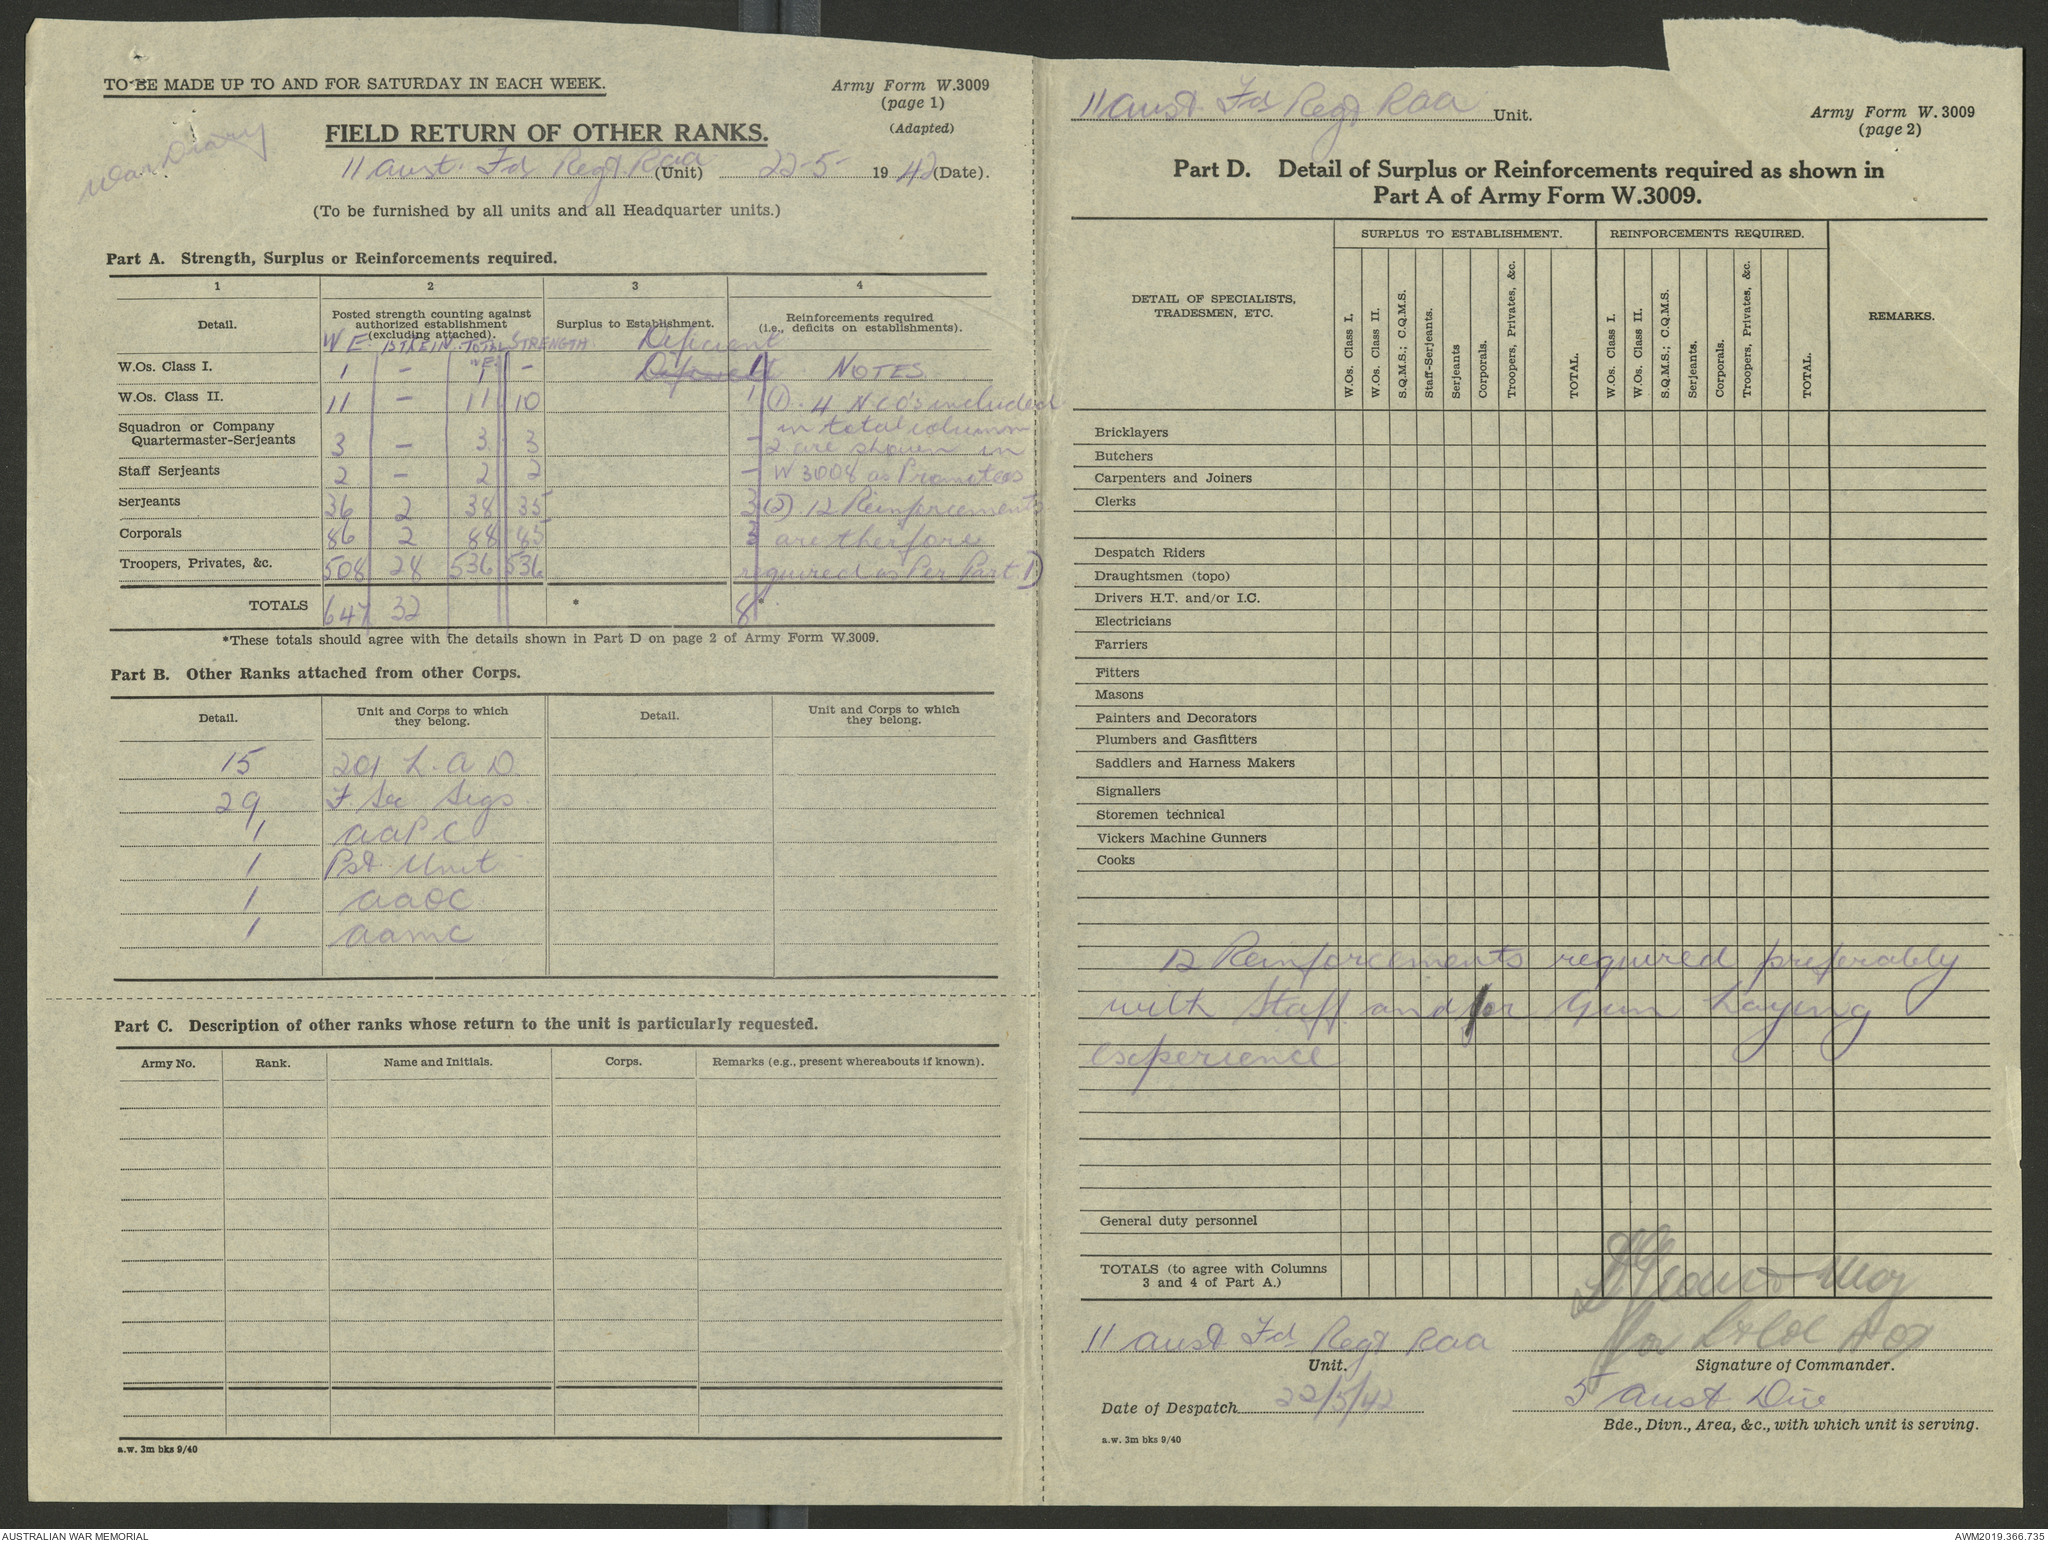 TO BE MADE UP TO AND FOR SATURDAY IN EACH WEEK.
Army Form W.3009
(page 1)
(Adapted)
War Diary
FIELD RETURN OF OTHER RANKS.
11 Aust. Fd Regt. RAA (Unit) 22-5- 1942 (Date).
(To be furnished by all units and all Headquarter units.)
Part A. Strength, Surplus or Reinforcements required.
1 2 3 4
Detail. Posted strength counting against authorized establishment (excluding attached). Surplus to Establishment. Reinforcements required (i.e., deficits on establishments).
W E 1ST REIN. TOTAL W E STRENGTH Deficient
W.Os. Class I. 1 – 1 – Deficient 1 NOTES
W.Os. Class II. 11 – 11 10 1 (1). 4 NCO's included
Squadron or Company in total column
Quartermaster-Serjeants 3 – 3 3 – 2 are shown in
Staff Serjeants 2 – 2 2 – W 3008 as Promotees
Serjeants 36 2 38 35 3 (2) 12 Reinforcements
Corporals 86 2 88 85 3 are therfore
Troopers, Privates, &c. 508 28 536 536 required as Per Part D
TOTALS 647 32 * 8 *
*These totals should agree with the details shown in Part D on page 2 of Army Form W.3009.
Part B. Other Ranks attached from other Corps.
Detail. Unit and Corps to which they belong. Detail. Unit and Corps to which they belong.
15 201 L. A D.
29 F. Sec Sigs
1 AAPC
1 Pst. Unit
1 AAOC
1 AAMC
Part C. Description of other ranks whose return to the unit is particularly requested.
Army No. Rank. Name and Initials. Corps. Remarks (e.g., present whereabouts if known).
a.w. 3m bks 9/40
11 Aust. Fd Regt RAA Unit.
Army Form W. 3009
(page 2)
Part D. Detail of Surplus or Reinforcements required as shown in
Part A of Army Form W.3009.
DETAIL OF SPECIALISTS, TRADESMEN, ETC.
SURPLUS TO ESTABLISHMENT. REINFORCEMENTS REQUIRED.
W.Os. Class I. W.Os. Class II. S.Q.M.S.; C.Q.M.S. Staff-Serjeants. Serjeants Corporals. Troopers, Privates, &c. TOTAL.
W.Os. Class I. W.Os. Class II. S.Q.M.S.; C.Q.M.S. Serjeants. Corporals. Troopers, Privates, &c. TOTAL.
REMARKS.
Bricklayers
Butchers
Carpenters and Joiners
Clerks
Despatch Riders
Draughtsmen (topo)
Drivers H.T. and/or I.C.
Electricians
Farriers
Fitters
Masons
Painters and Decorators
Plumbers and Gasfitters
Saddlers and Harness Makers
Signallers
Storemen technical
Vickers Machine Gunners
Cooks
12 Reinforcements required preferably
with Staff and/or Gun Laying
experience
General duty personnel
TOTALS (to agree with Columns
3 and 4 of Part A.)
Maj
for Lt Col
11 Aust Fd Regt RAA
Unit. Signature of Commander.
5 Aust Div
Date of Despatch 22/5/42
Bde., Divn., Area, &c., with which unit is serving.
a.w. 3m bks 9/40
AUSTRALIAN WAR MEMORIAL
AWM2019.366.735